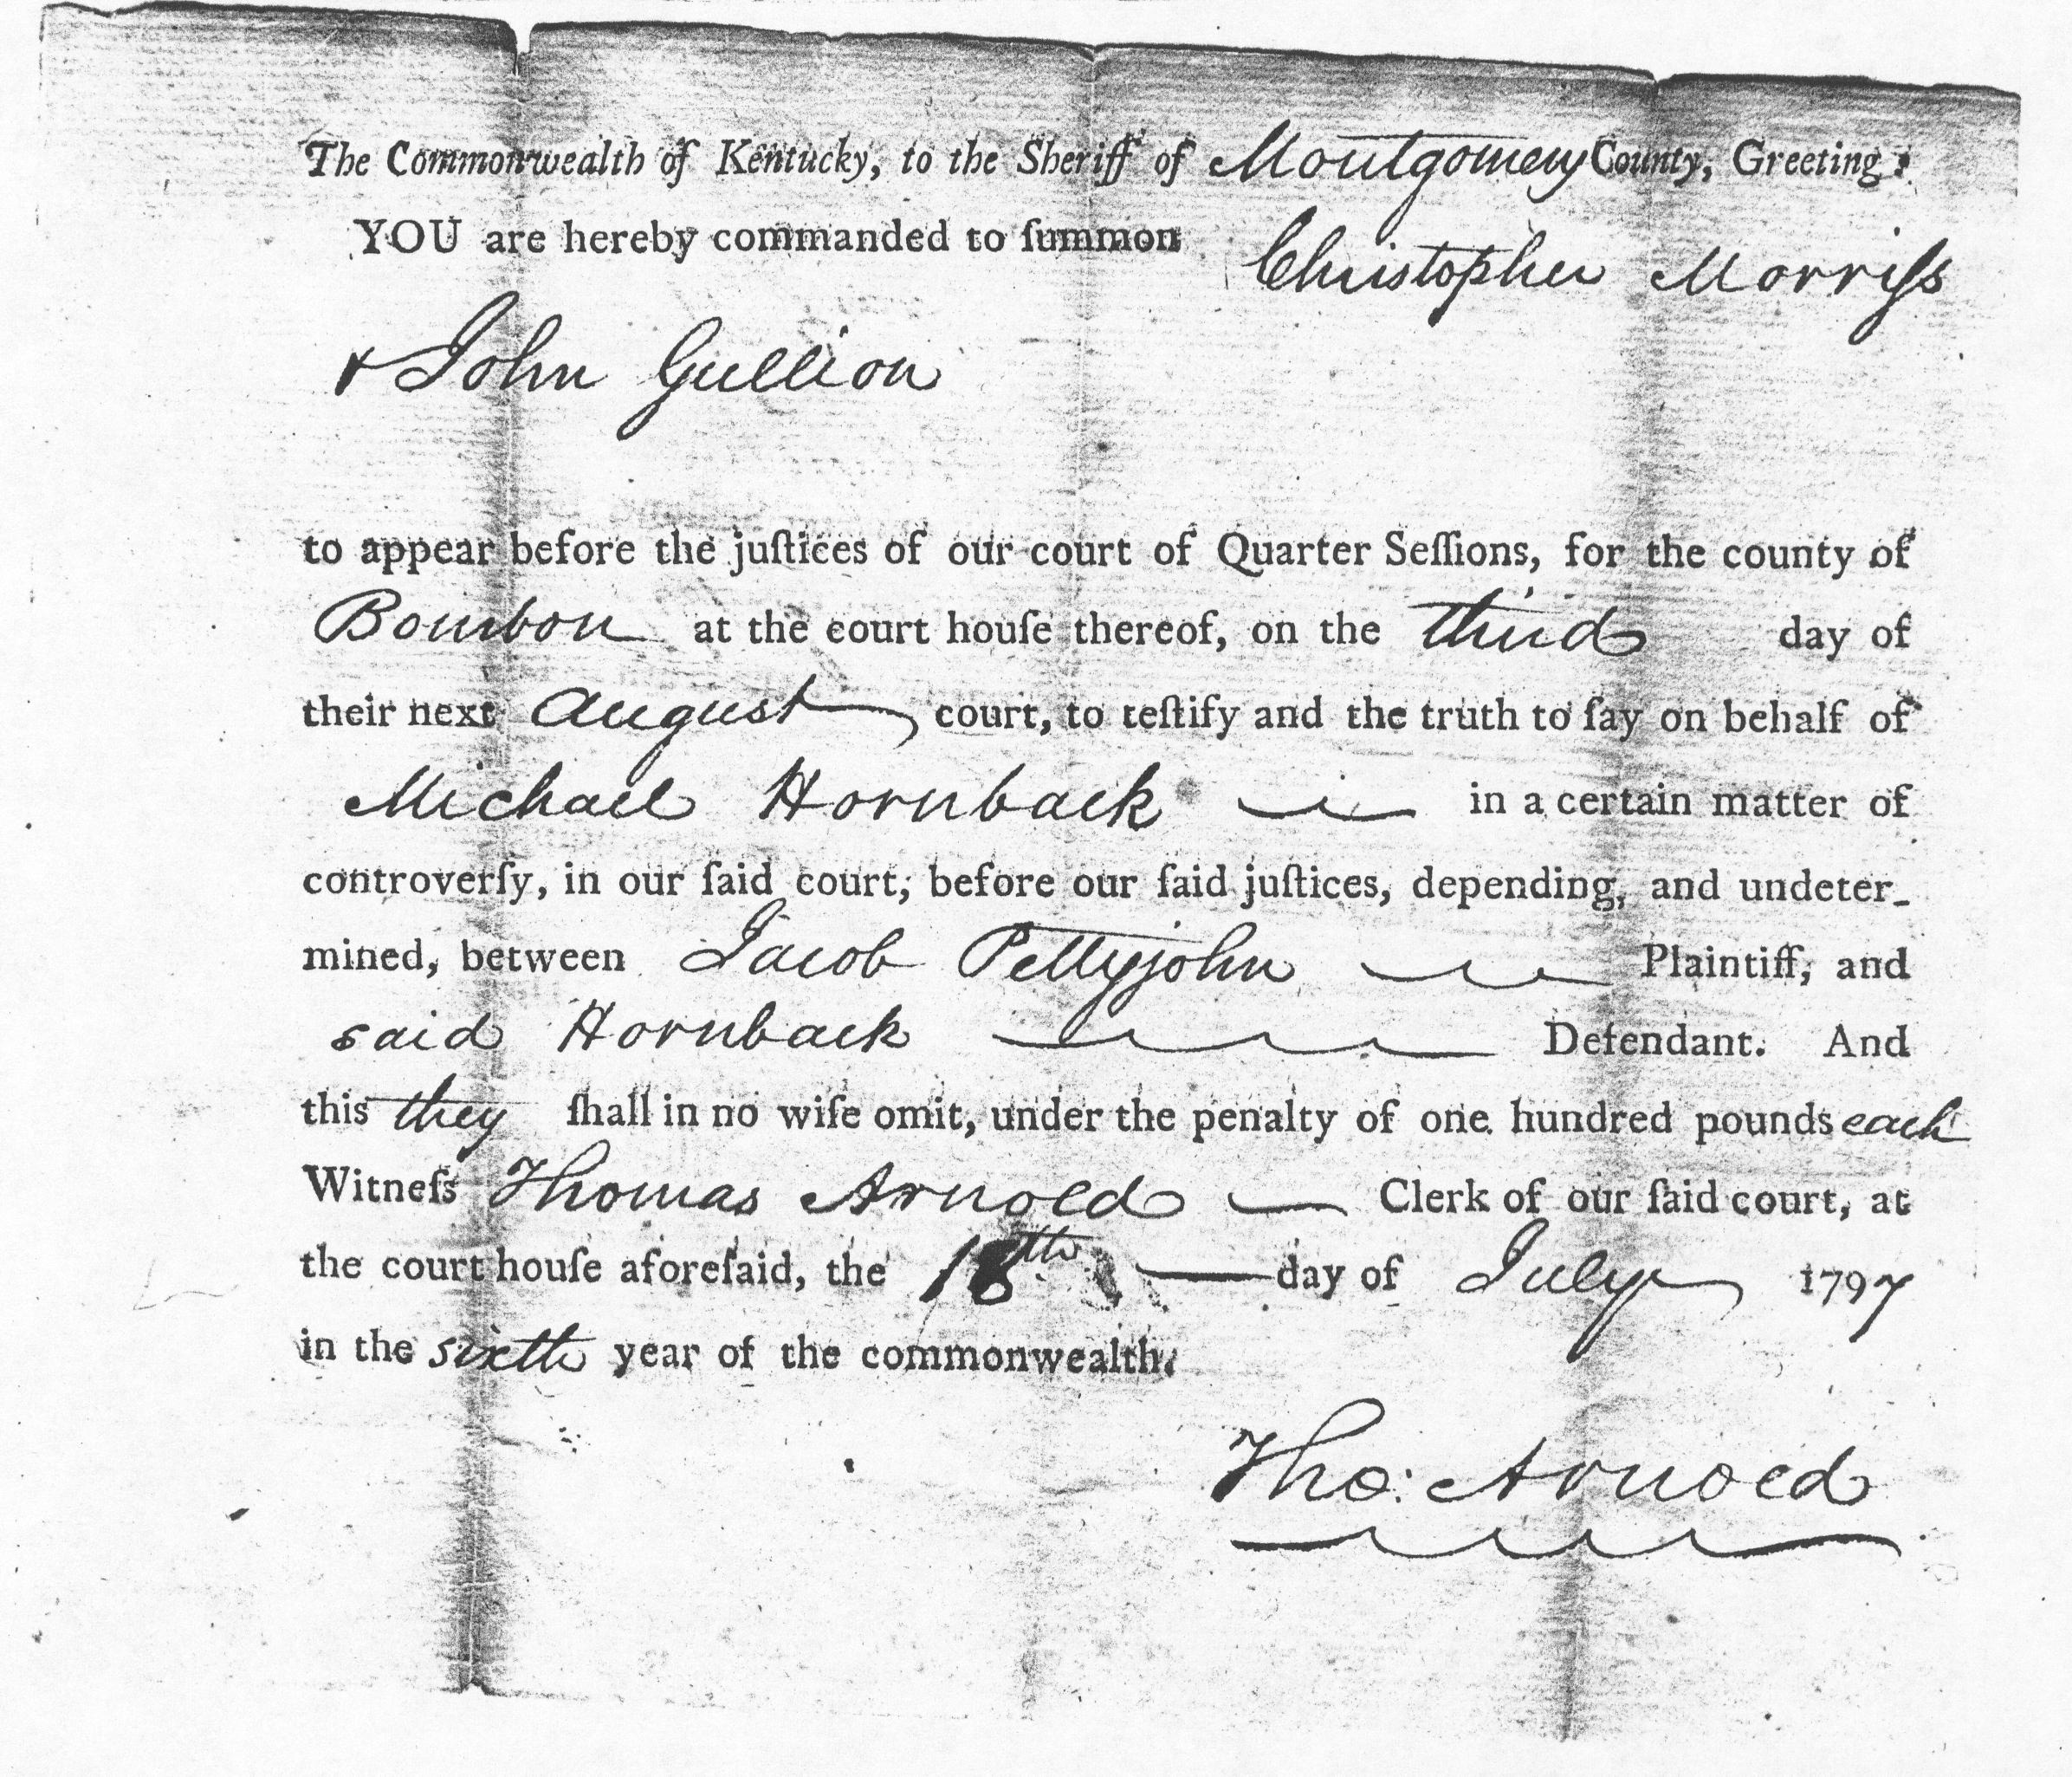 The Commonwealth of Kentucky, to the Sheriff of Montgomery County, Greeting:
YOU are hereby commanded to ſummon Christopher Morriſs
& John Gullion
to appear before the juſtices of our court of Quarter Seſſions, for the county of
Bourbon at the court houſe thereof, on the third day of
their next August court, to teſtify and the truth to ſay on behalf of
Michael Hornback in a certain matter of
controverſy, in our ſaid court, before our ſaid juſtices, depending, and undeter-
mined, between Jacob Pettyjohn Plaintiff, and
said Hornback Defendant. And
this they ſhall in no wiſe omit, under the penalty of one hundred pounds each
Witneſs Thomas Arnold Clerk of our ſaid court, at
the court houſe aforeſaid, the 18th day of July 1797
in the sixth year of the commonwealth.
Tho: Arnold